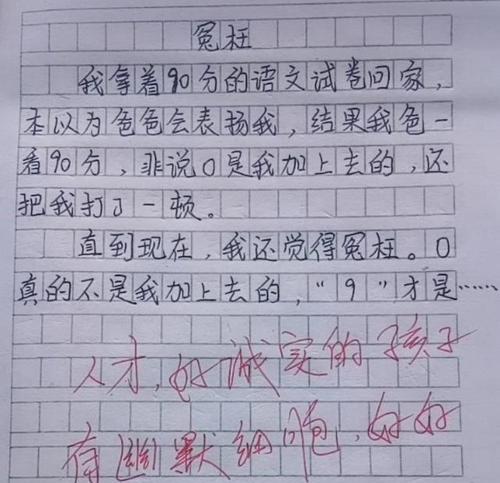 冤枉
我拿着90分的语文试卷回家，
本以为爸爸会表扬我，结果我爸一
看90分，非说0是我加上去的，还
把我打了一顿。
直到现在，我还觉得冤枉。0
真的不是我加上去的，“9”才是……
人才，好诚实的孩子
有幽默细胞，好好